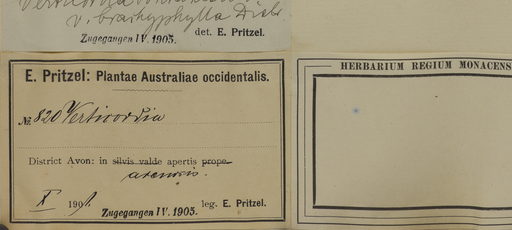 v. brachyphylla Diels
Zugegangen IV. 1905. det. E. Pritzel.
E. Pritzel: Plantae Australiae occidentalis.
№ 820 Verticordia
District Avon: in silvis valde apertis prope
arenosis.
X 1901. leg. E. Pritzel.
Zugegangen IV. 1905.
HERBARIUM REGIUM MONACENS